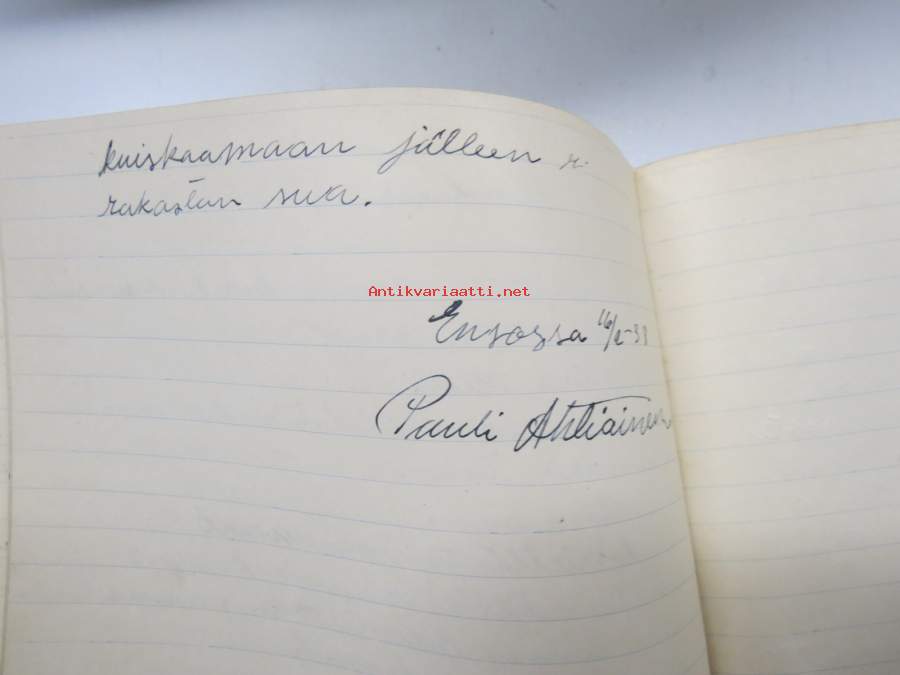 kuiskaamaan jälleen
rakastan sua.
Antikvariaatti.net
Ensossa 16/2-33
Pauli Ahtiainen